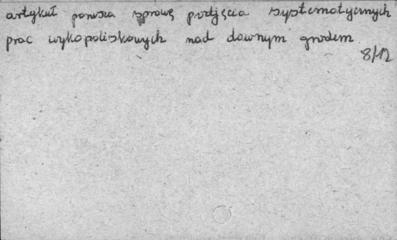 artykuł porusza sprawę podjęcia systematycznych
prac wykopaliskowych nad dawnym grodem
8/12